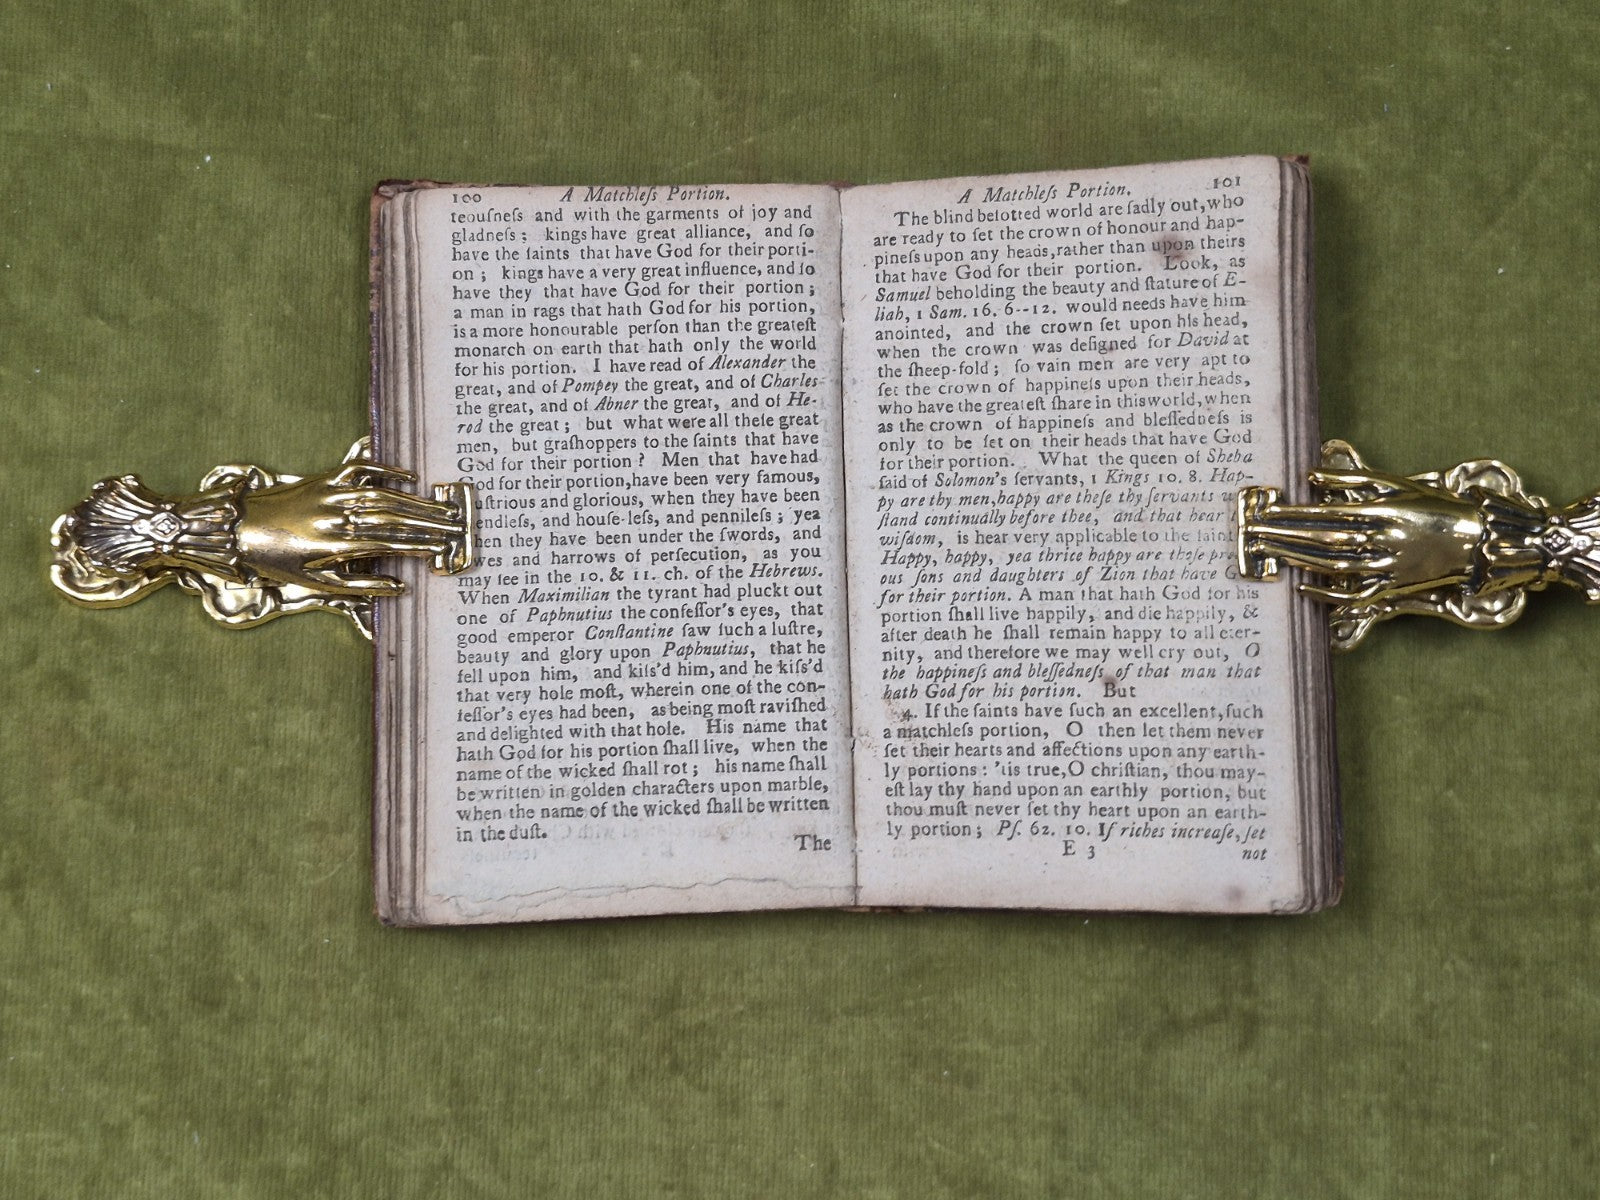 100 A Matchleſs Portion.
teouſneſs and with the garments of joy and
gladneſs; kings have great alliance, and ſo
have the ſaints that have God for their porti-
on; kings have a very great influence, and ſo
have they that have God for their portion;
a man in rags that hath God for his portion,
is a more honourable perſon than the greateſt
monarch on earth that hath only the world
for his portion. I have read of Alexander the
great, and of Pompey the great, and of Charles
the great, and of Abner the great, and of He-
rod the great; but what were all theſe great
men, but graſhoppers to the ſaints that have
God for their portion? Men that have had
God for their portion, have been very famous,
uſtrious and glorious, when they have been
endleſs, and houſe-leſs, and pennileſs; yea
hen they have been under the ſwords, and
wes and harrows of perſecution, as you
may ſee in the 10. & 11. ch. of the Hebrews.
When Maximilian the tyrant had pluckt out
one of Paphnutius the confeſſor's eyes, that
good emperor Conſtantine ſaw ſuch a luſtre,
beauty and glory upon Paphnutius, that he
fell upon him, and kiſs'd him, and he kiſs'd
that very hole moſt, wherein one of the con-
feſſor's eyes had been, as being moſt raviſhed
and delighted with that hole. His name that
hath God for his portion ſhall live, when the
name of the wicked ſhall rot; his name ſhall
be written in golden characters upon marble,
when the name of the wicked ſhall be written
in the duſt.
The
A Matchleſs Portion. 101
The blind beſotted world are ſadly out, who
are ready to ſet the crown of honour and hap-
pineſs upon any heads, rather than upon theirs
that have God for their portion. Look, as
Samuel beholding the beauty and ſtature of E-
liah, 1 Sam. 16. 6--12. would needs have him
anointed, and the crown ſet upon his head,
when the crown was deſigned for David at
the ſheep-fold; ſo vain men are very apt to
ſet the crown of happineſs upon their heads,
who have the greateſt ſhare in this world, when
as the crown of happineſs and bleſſedneſs is
only to be ſet on their heads that have God
for their portion. What the queen of Sheba
ſaid of Solomon's ſervants, 1 Kings 10. 8. Hap-
py are thy men, happy are theſe thy ſervants w
ſtand continually before thee, and that hear
wiſdom, is hear very applicable to the ſaint
Happy, happy, yea thrice happy are thoſe pre
ous ſons and daughters of Zion that have G
for their portion. A man that hath God for his
portion ſhall live happily, and die happily, &
after death he ſhall remain happy to all eter-
nity, and therefore we may well cry out, O
the happineſs and bleſſedneſs of that man that
hath God for his portion. But
4. If the ſaints have ſuch an excellent, ſuch
a matchleſs portion, O then let them never
ſet their hearts and affections upon any earth-
ly portions: 'tis true, O chriſtian, thou may-
eſt lay thy hand upon an earthly portion, but
thou muſt never ſet thy heart upon an earth-
ly portion; Pſ. 62. 10. If riches increaſe, ſet
E 3 not